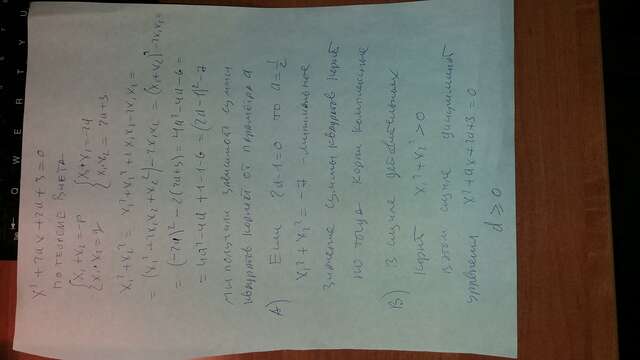 x² + 2ax + 2a + 3 = 0
по теореме Виета
{x₁ + x₂ = -p {x₁ + x₂ = -2a
{x₁ · x₂ = q {x₁x₂ = 2a + 3
x₁² + x₂² = x₁² + x₂² + 2x₁x₂ - 2x₁x₂ =
= (x₁² + 2x₁x₂ + x₂²) - 2x₁x₂ = (x₁ + x₂)² - 2x₁x₂ =
= (-2a)² - 2(2a+3) = 4a² - 4a - 6 =
= 4a² - 4a + 1 - 1 - 6 = (2a-1)² - 7
мы получили зависимость суммы
квадратов корней от параметра a
А) Если 2a-1=0 то a=½
x₁² + x₂² = -7 - минимальное
значение суммы квадратов корней
но тогда корни комплексные
В) В случае действительных
корней x₁² + x₂² > 0
в этом случае дискриминант
уравнения x² + ax + 2a + 3 = 0
d ≥ 0
Q W E R T Y U